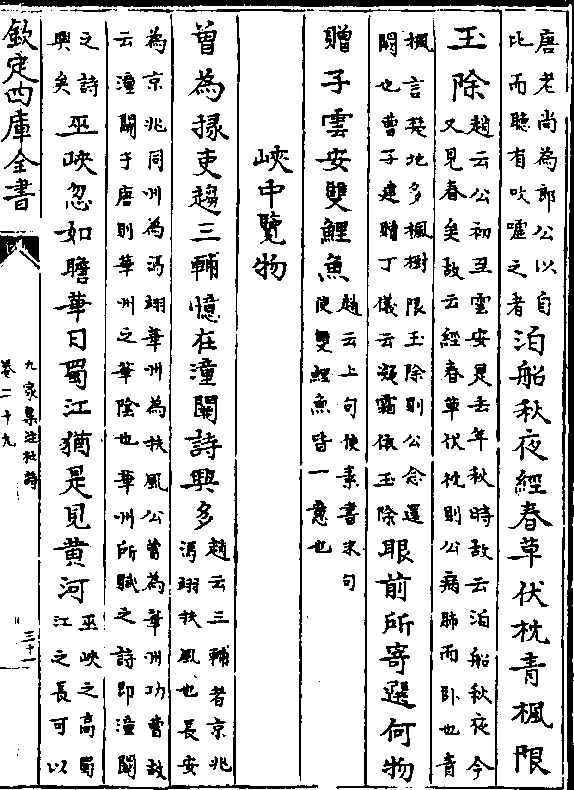 唐老尚為郎公以自比而聽有吹噓之者泊船秋夜經春草伏枕青楓限
玉除趙云公初至雲安是去年秋時故云泊船秋夜今又見春矣故云經春草伏枕則公病肺而卧也青
楓言楚地多楓樹限玉除則公念還闕也曹子建贈丁儀云凝霜依玉除眼前所寄選何物
贈子雲安雙鯉魚趙云上句使素書末句使雙鯉魚皆一意也
峽中覽物
曾為掾吏趨三輔憶在潼關詩興多趙云三輔者京兆馮翊扶風也長安
為京兆同州為馮翊華州為扶風公曾為華州功曹故云潼關于唐則華州之華陰也華州所賦之詩即潼關
之詩興矣巫峽忽如瞻華日蜀江猶是見黄河巫峽之高蜀江之長可以
欽定四庫全書
九家集注杜詩
卷二十九
三十一